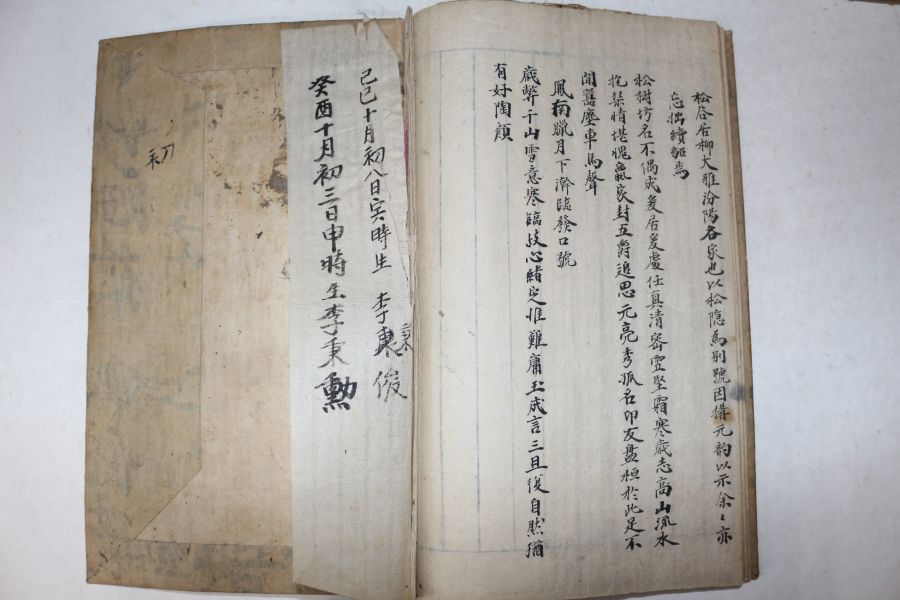 松居柳大雅汾陽各家也以松隱爲別號因構元韵以示余々亦
忘拙續貂焉
松樹坊名不偶成爰居爰處任真清密雲堅霜寒歲志高山流水
抱琹情堪愧家封五爵追思元亮秀孤名卯友盤桓於此足不
聞囂塵車馬聲
鳳南臘月下澣臨發口號
歲弊千山雪意寒臨歧心緖定惟難庸玉成言三且復自然猶
有好陶顔
己巳十月初八日寅時生 李秉俊
癸酉十月初三日申時生李秉勳
初